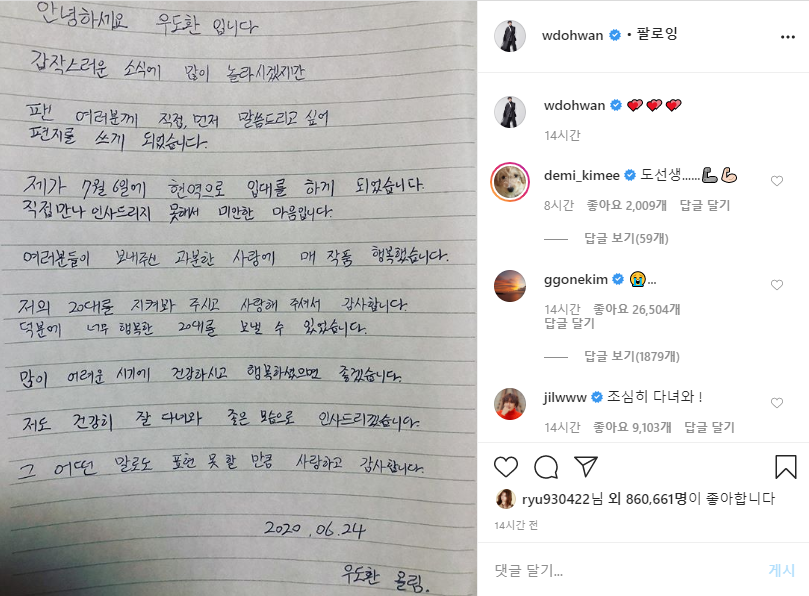 안녕하세요 우도환 입니다
갑작스러운 소식에 많이 놀라시겠지만
팬 여러분께 직접, 먼저 말씀드리고 싶어
편지를 쓰게 되었습니다.
제가 7월 6일에 현역으로 입대를 하게 되었습니다.
직접만나 인사드리지 못해서 미안한 마음입니다.
여러분들이 보내주신 과분한 사랑에 매 작품 행복했습니다.
저의 20대를 지켜봐 주시고 사랑해 주셔서 감사합니다.
덕분에 너무 행복한 20대를 보낼 수 있었습니다.
많이 어려운 시기에 건강하시고 행복하셨으면 좋겠습니다.
저도 건강히 잘 다녀와 좋은 모습으로 인사드리겠습니다.
그 어떤 말로도 표현 못 할 만큼 사랑하고 감사합니다.
2020.06.24
우도환 올림.
wdohwan • 팔로잉
wdohwan ❤❤❤
14시간
demi_kimee 도선생......🦾💪🏻
8시간 좋아요 2,009개 답글 달기
답글 보기(59개)
ggonekim 😭...
14시간 좋아요 26,504개
답글 달기
답글 보기(1879개)
jilwww 조심히 다녀와 !
14시간 좋아요 9,103개 답글 달기
ryu930422님 외 860,661명이 좋아합니다
14시간 전
댓글 달기...
게시